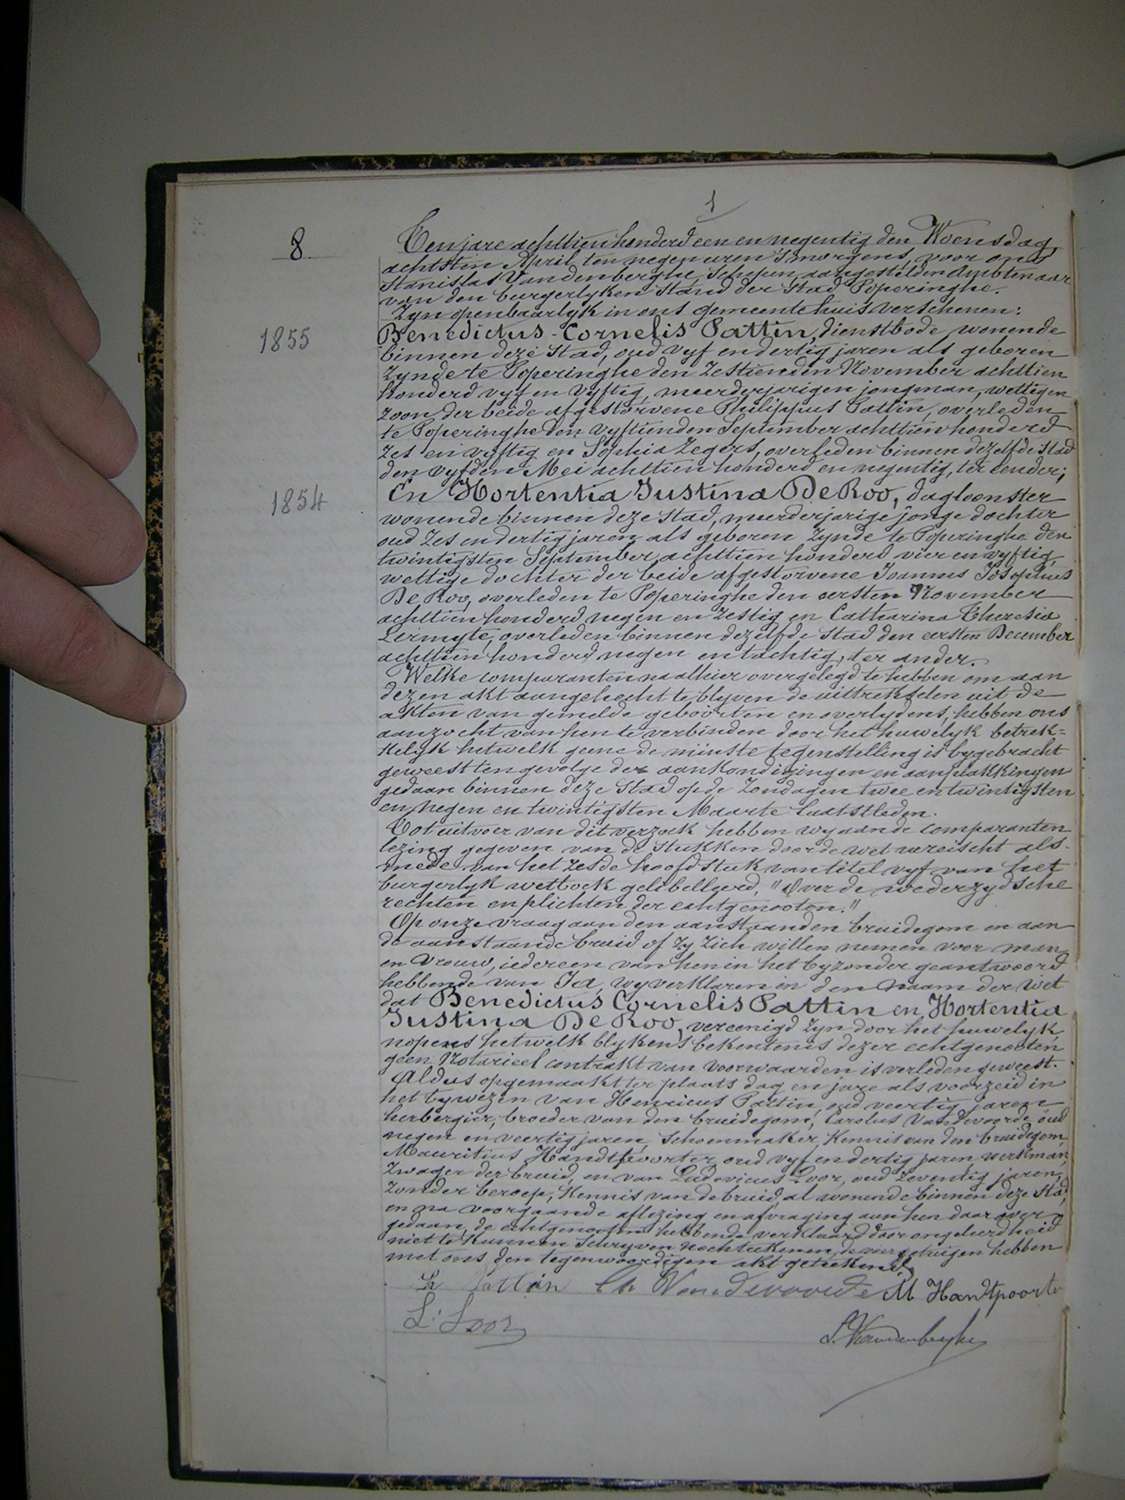 1
8
Ten jare achttien honderd een en negentig den Woensdag
achtsten April, ten negen uren 's morgens, voor ons
Stanislas Vandenberghe, Schepen, aangestelden Ambtenaar
van den burgerlyken stand der Stad Poperinghe.
Zyn openbaarlyk in ons gemeentehuis verschenen:
1855
Benedictus-Cornelis Pattin, dienstbode, wonende
binnen deze Stad, oud vyf en dertig jaren als geboren
zynde te Poperinghe den zestienden November achttien
honderd vyf en vyftig, meerderjarigen jongman, wettigen
zoon der beide afgestorvene Philippus Pattin, overleden
te Poperinghe den vyftienden September achttien honderd
zes en vyftig en Sophia Zegers, overleden binnen dezelfde stad
den vyfden Mei achttien honderd en negentig, ter eender;
1854
En Hortentia Justina De Roo, dagloonster
wonende binnen deze stad, meerderjarige jonge dochter
oud zes en dertig jaren als geboren zynde te Poperinghe den
twintigsten September achttien honderd vier en vyftig,
wettige dochter der beide afgestorvene Joannes Josephus
De Roo, overleden te Poperinghe den eersten November
achttien honderd negen en zestig en Catharina Theresia
Lermyte, overleden binnen dezelfde stad den eersten December
achttien honderd negen en tachtig, ter ander.
Welke comparanten na alhier overgelegd te hebben om aan
dezen akt aangehecht te blyven de uittrekselen uit de
akten van gemelde geboorten en overlydens, hebben ons
aanzocht van hen te verbinden door het huwelyk betrek-
kelyk hetwelk geene de minste tegenstelling is bygebracht
geweest ten gevolge der aankondigingen en aanplakkingen
gedaan binnen deze Stad op de Zondagen twee en twintigsten
en negen en twintigsten Maarte laatstleden.
Tot uitvoer van dit verzoek hebben wy aan de comparanten
lezing gegeven van de Stukken door de wet vereischt als-
mede van het zesde hoofdstuk van titel vyf van het
burgerlyk wetboek gelibelleerd, "Over de wederzydsche
rechten en plichten der echtgenooten."
Op onze vraag aan den aanstaanden bruidegom en aan
de aanstaande bruid of zy zich willen nemen voor man
en vrouw, iedereen van hen in het byzonder geantwoord
hebbende van Ja, wy verklaren in den naam der wet
dat Benedictus Cornelis Pattin en Hortentia
Justina De Roo, vereenigd zyn door het huwelyk,
nopens hetwelk blykens bekentenis dezer echtgenooten
geen Notarieel contrakt van voorwaarden is verleden geweest.
Aldus opgemaakt ter plaats dag en jare als voorzeid in
het bywezen van Henricus Pattin, oud veertig jaren
herbergier, broeder van den bruidegom, Carolus Vandevoorde oud
negen en veertig jaren, Schoenmaker, kennis van den bruidegom,
Mauritius Handtpoorter, oud vyf en dertig jaren, werkman,
zwager der bruid, en van Ludovicus Loor, oud zeventig jaren,
zonder beroep, kennis van de bruid, al wonende binnen deze Stad,
en na voorgaande aflezing en afvraging aan hen daarover
gedaan, de echtgenooten hebbende verklaard door ongeleerdheid
niet te kunnen schryven noch teekenen, de vier getuigen hebben
met ons den tegenwoordigen akt geteekend.
Pattin Ch Vandevoorde M Handtpoorter
L. Loor
S. Vandenberghe